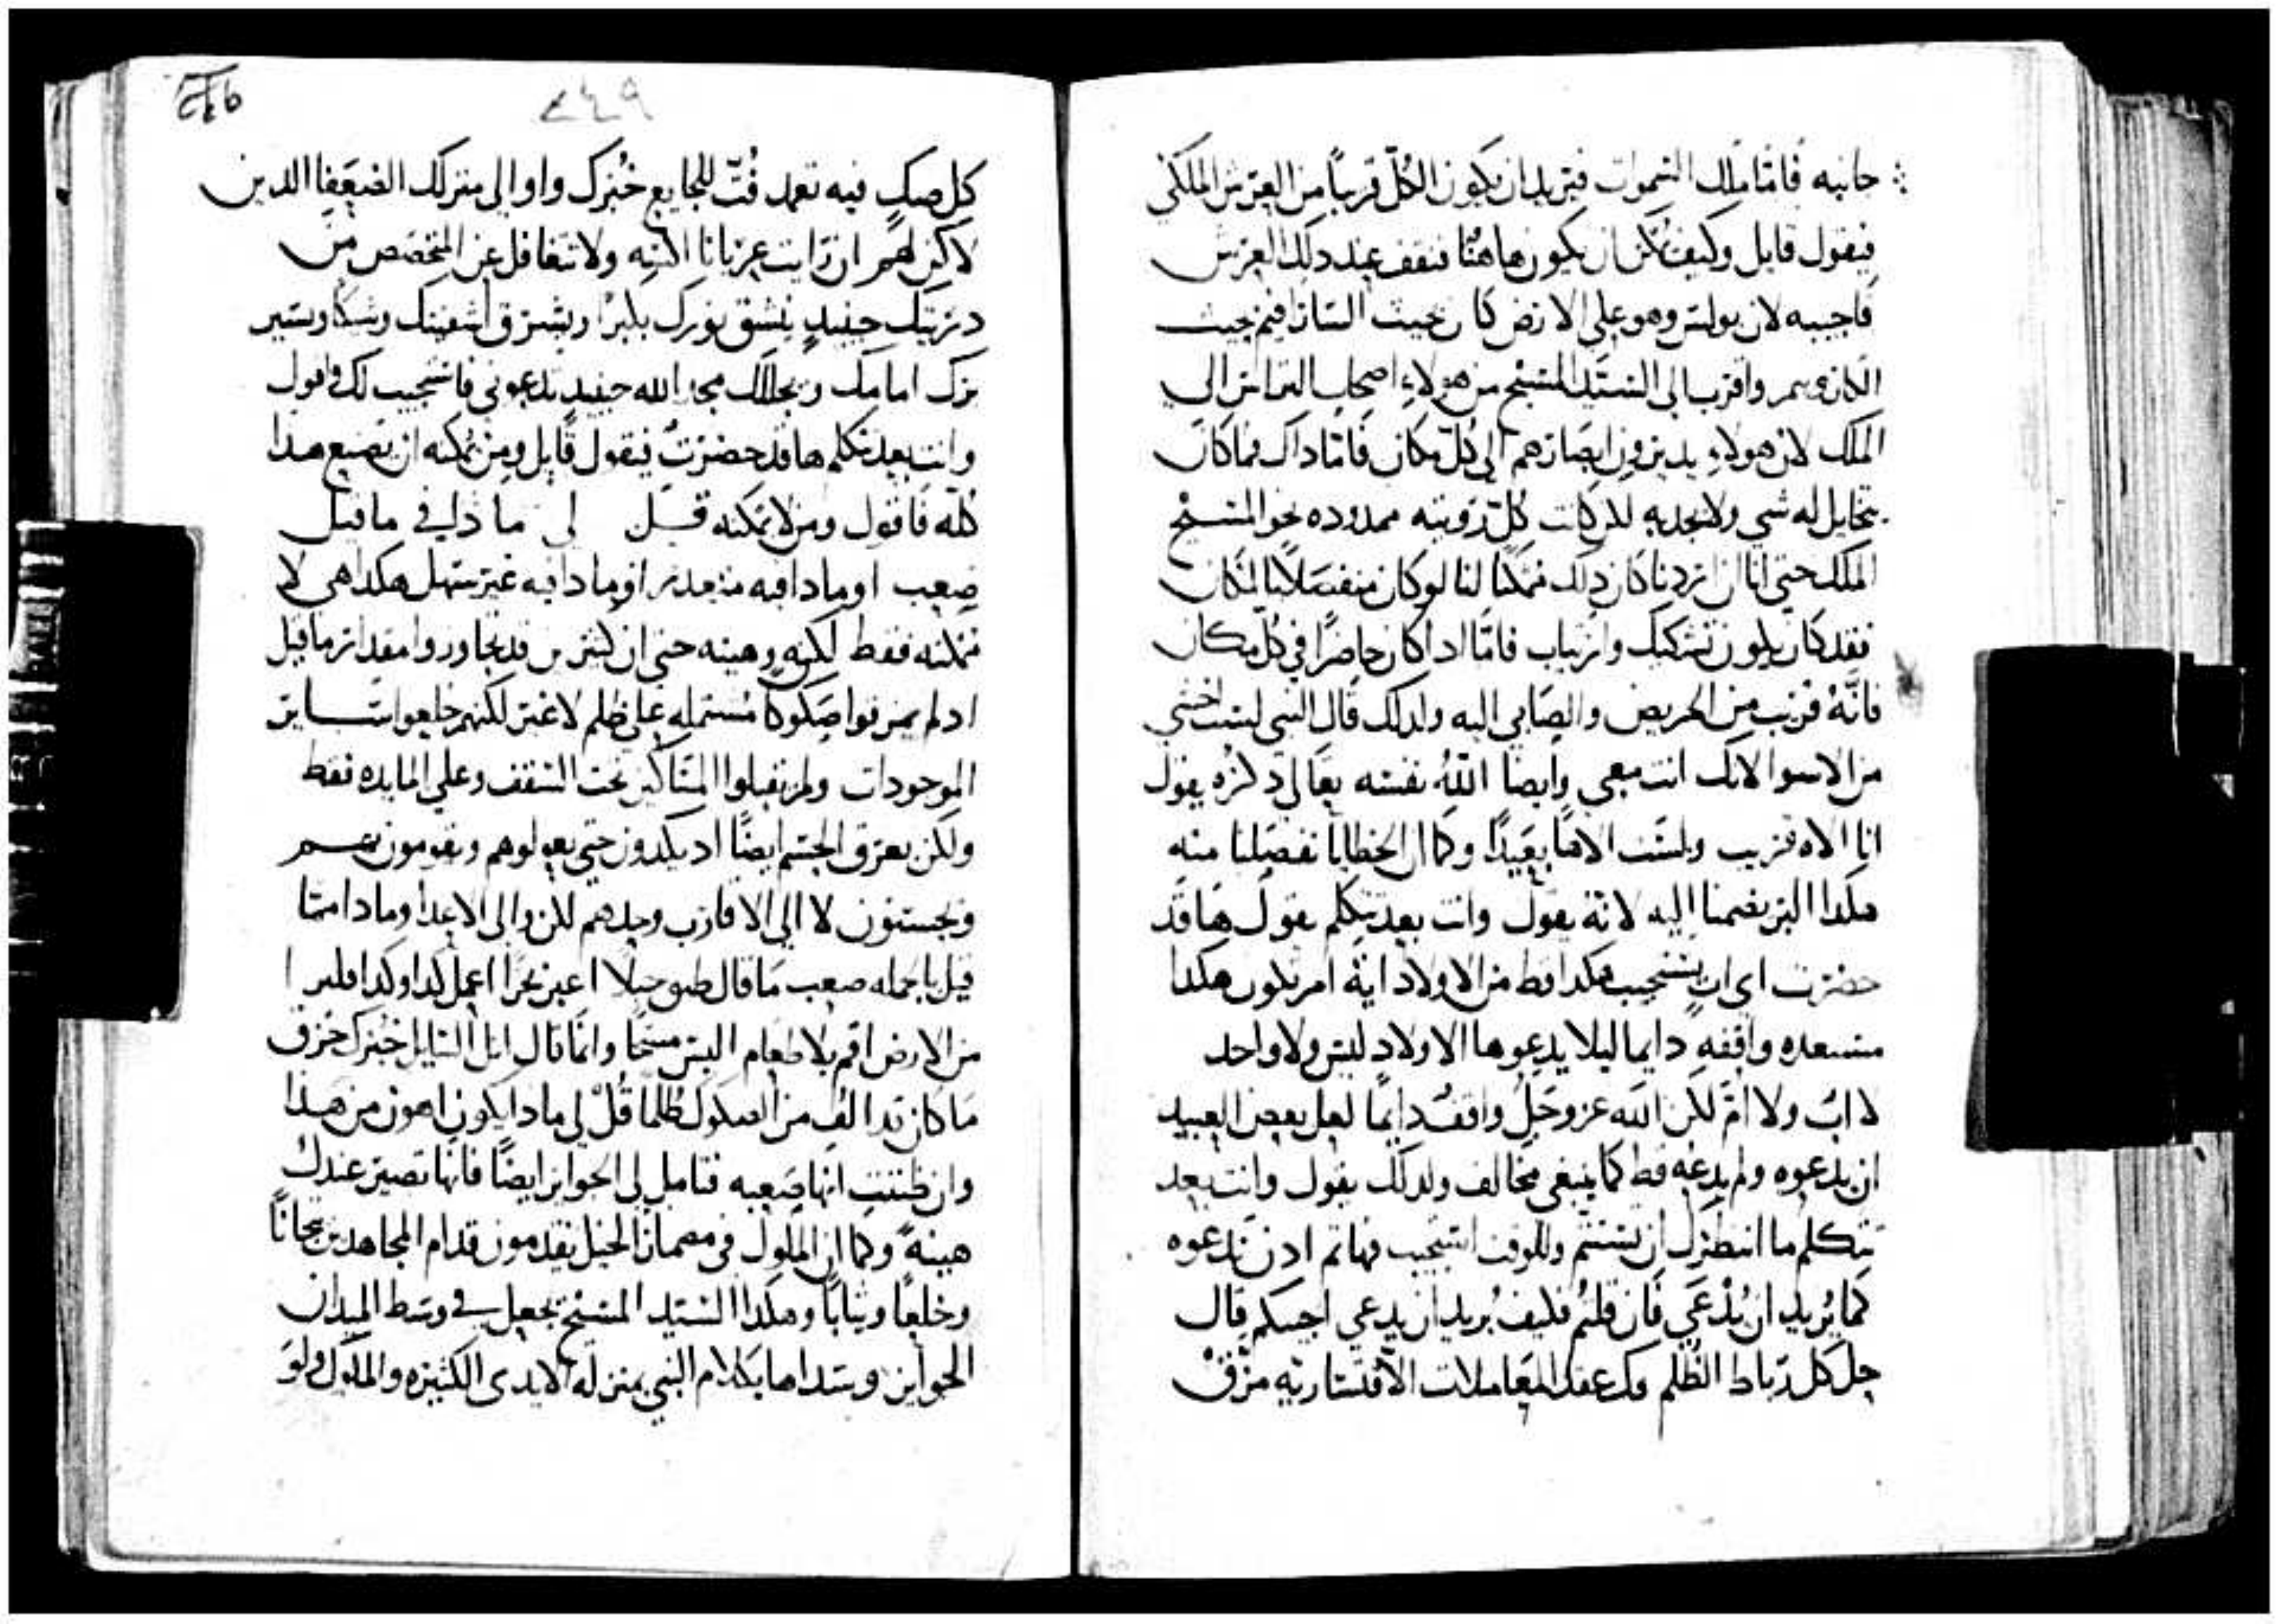 جانبه فامّا ملك السموات فيريد ان يكون الكلّ قريباً من العرش الملكي
فيقول قايل وكيف يمكن ان يكون هاهنا فنقف عند ذلك العرش
فاجيبه لان بولس وهو على الارض كان بحيث الساراڢيم بحيث
واقرب الى السيّد المسيح من هولاء اصحاب التراس الى
الملك لان هولاء يديرون ابصارهم الى كلّ مكان فامّا داك فما كان
يتخايل له شي ولا يجدبه لكن كانت كلّ رويته ممدوده نحو المسيح
الملك حتى اننا ان اردنا كان دلك ممكناً لنا لو كان منفصلاً بالمكان
فقد كان يكون تشكيك وارتياب فامّا ادا كان حاضراً في كلّ مكان
فانّهُ قريب من الحريص والصابي اليه ولدلك قال النبي لست اخشى
من الاسوا لانك انت معي وايضاً اللهُ نفسه تعالى دكرُه يقول
انا الاه قريب ولست الاهاً بعيداً وكما ان الخطايا تفصلنا منه
هكدا البرّ يضمنا اليه لانه يقول وانت بعد تتكلم يقول ها قد
حضرت اي ابٍ يستجيب هكدا قط من الاولاد اية امر تكون هكدا
مستعده واقفةٍ دايما ليلا يدعوها الاولاد ليس ولا واحد
لا ابٌ ولا امّ لكن الله عز وجل واقفٌ دايماً لعل بعض العبيد
ان يدعوه ولم يدعُه قط كما ينبغي مخالف ولدلك يقول وانت بعد
تتكلم ما انتظرك ان تستتم وللوقت استجيب فهاتم ادن ندعوه
كما يُريد ان يُدْعَى فان قلتم فكيف يُريد ان يدعى اجيبكم قال
حل كل رباط الظلم فك عقد المعاملات الاقتسارية مزّقْ
٢٤٩
كل صكٍ فيه تعمد فُتّ للجايع خُبزك واوا الى منزلك الضعفا الدين
لاكن لهم ان رايت عريانا اكسِه ولا تتغافل عن المختصص من
دريتك حينيدٍ ينشق نورك بكيراً ويشرق اشفيتك وشيكا ويسير
برّك امامك ويجللك مجد الله حينيد تدعوني فاستجيب لك واقول
وانت بعد تتكلم ها قد حضرتُ فيقول قايل ومن يمكنه ان يصنع هدا
كُلّه فاقول ومن لا يمكنه قــل لي ما دا في ما قيل
صعب او ما دا فيه متعدر او ما دا فيه غير سهل هكدا هي لا
ممكنه فقط لكنه وهينه حتى ان كثيرين قد تجاوروا مقدار ما قيل
اد لم يمزقوا صكوكاً مشتمله على ظلم لا غير لكنهم خلعوا ســاير
الموجودات ولم يقبلوا المساكين تحت السقف وعلى المايده فقط
ولكن بعرق الجسم ايضاً اد يكدون حتى يعولوهم ويقومون بهم
ويحسنون لا الى الاقارب وحدهم لكن والى الاعدا وما دا ممّا
قيل بالجمله صعب ما قال طف جبلاً اعبر بحراً اعمل كدا وكدا فلبرا
من الارض اقم بلا طعام البس مسحًا وانما قال انل السايل خبزك خزق
ما كان قد الف من الصكوك ظلمًا قُلْ لي ما دا يكون اهون من هدا
وان ظننت انها صعبه فتامل لي الجوايز ايضاً فانها تصير عندك
هينهً وكما ان الملوك في مضمار الخيل يقدمون قدام المجاهدين تيجاناً
وخلعًا وثياباً وهكدا السيد المسيح يجعل في وسط الميدان
الجوايز وستداها بكلام النبي بمنزله الايدي الكثيره والملوك ولوَ